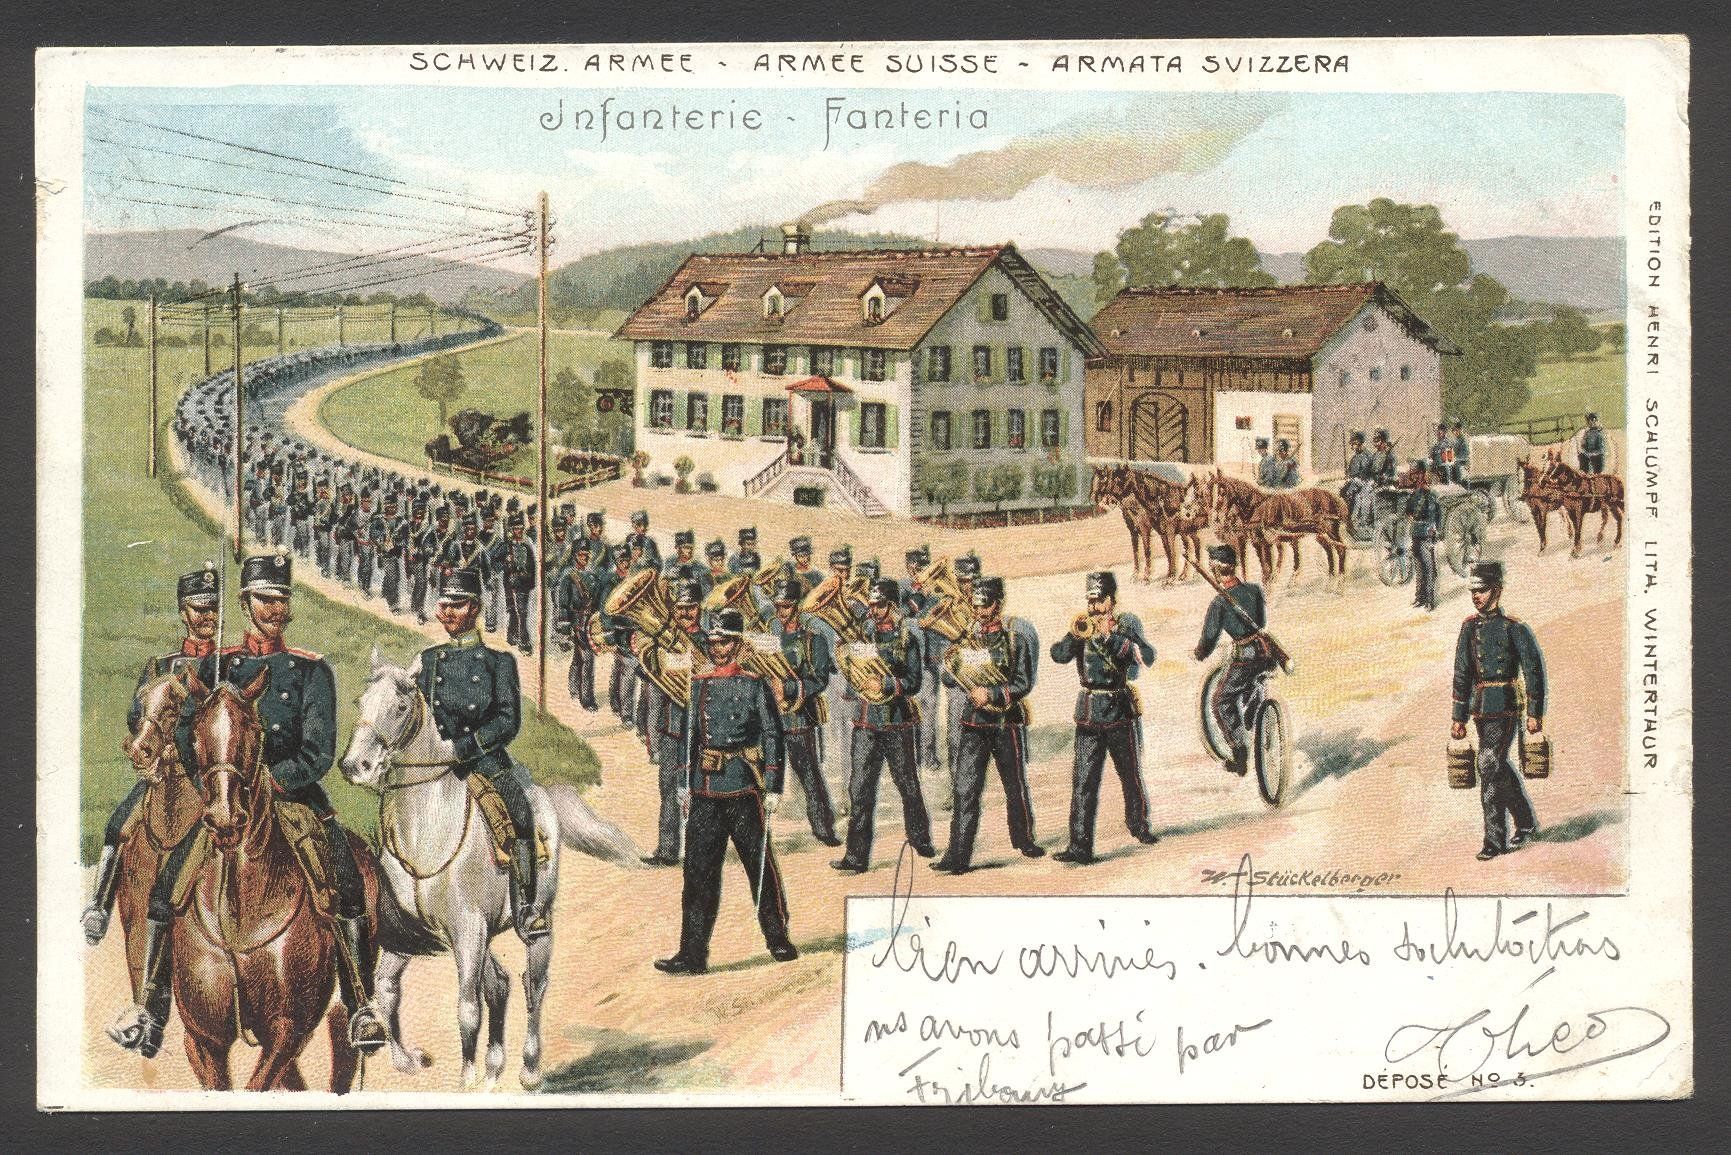 SCHWEIZ. ARMEE - ARMÉE SUISSE - ARMATA SVIZZERA
Infanterie - Fanteria
EDITION HENRI SCHLUMPF LITH. WINTERTHUR
W. Stückelberger
bien arrivés. bonnes salutations
ns avons passé par
Fribourg
Théo
DÉPOSÉ No 3.